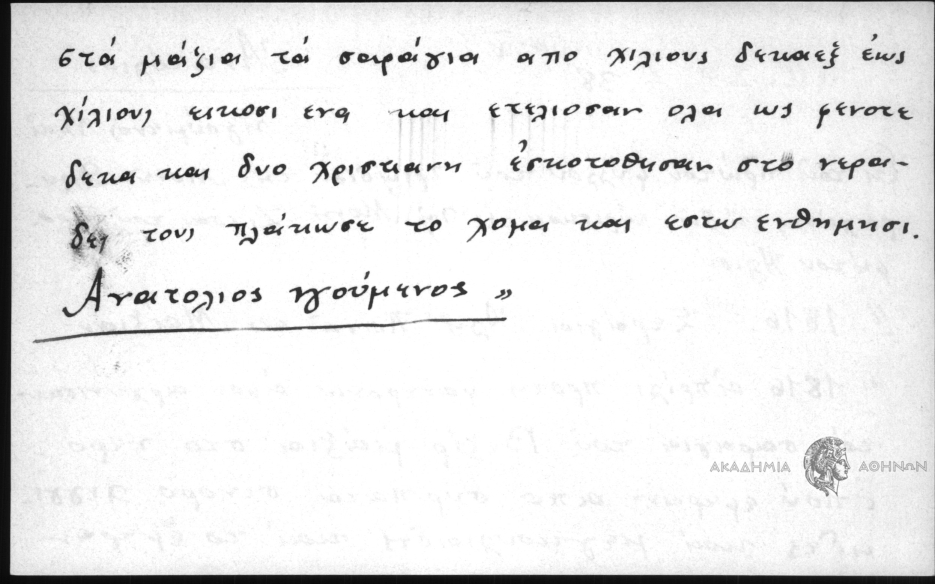 στά μάζια τά σαράγια απο χιλιους δεκαεξ έως
χίλιους εικοσι ενα και ετελιοσαν ολα ως φενοτε
δεκα και δυο χριστιανη έσκοτοθησαν στο νεραι-
δες τους πλάκωσε το χομα και εστω ενθημησι.
Ανατολιος ηγούμενος "
ΑΚΑΔΗΜΙΑ ΑΘΗΝΩΝ